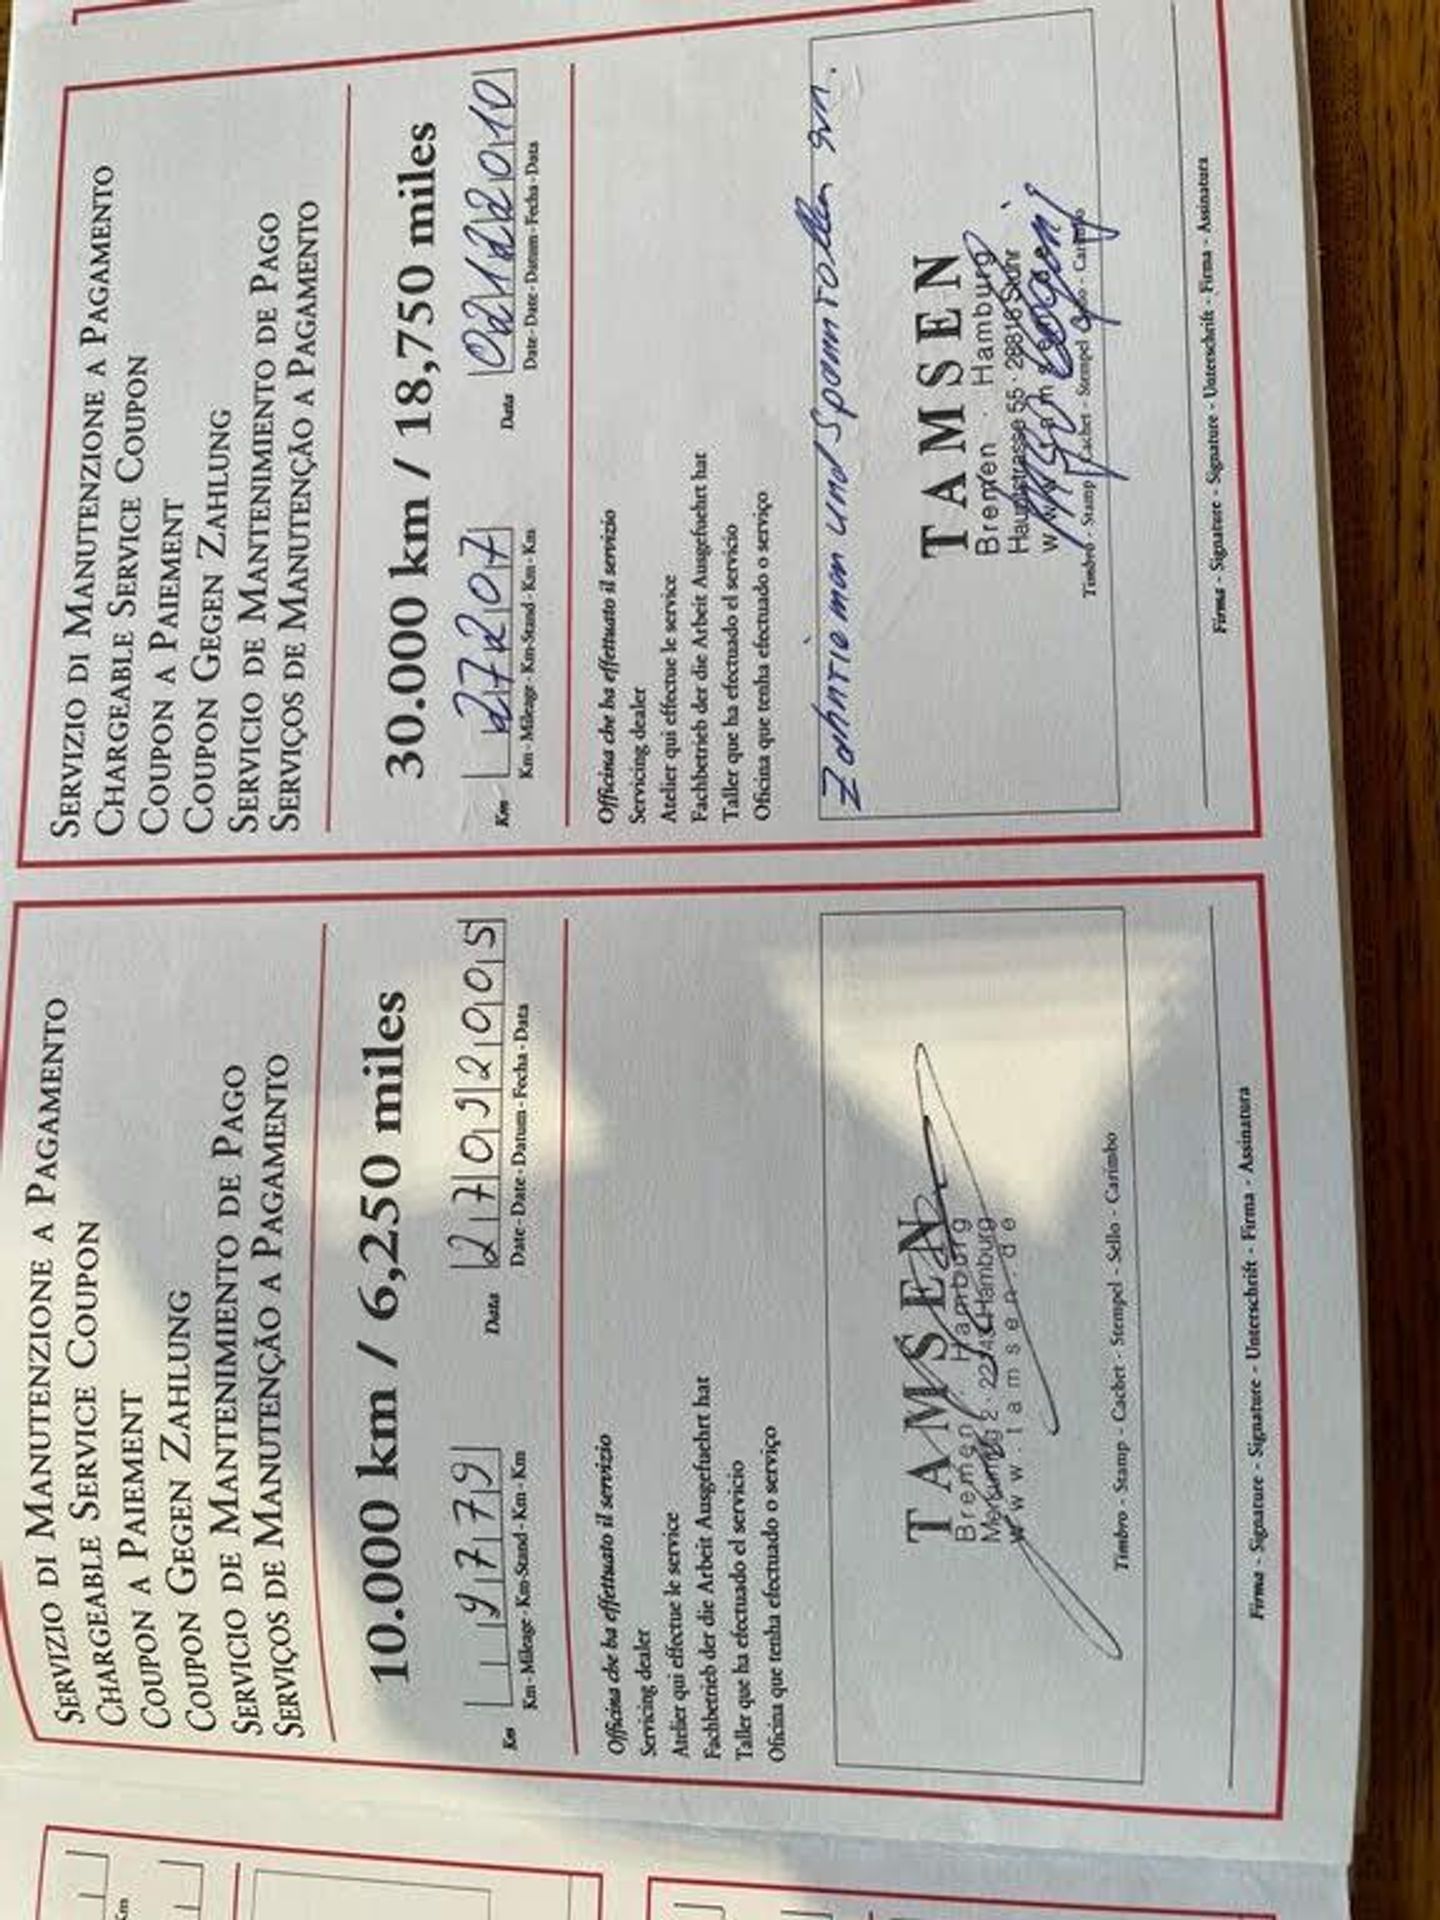 SERVIZIO DI MANUTENZIONE A PAGAMENTO
CHARGEABLE SERVICE COUPON
COUPON A PAIEMENT
COUPON GEGEN ZAHLUNG
SERVICIO DE MANTENIMIENTO DE PAGO
SERVIÇOS DE MANUTENÇÃO A PAGAMENTO
10.000 km / 6,250 miles
Km 9779 Data 27092005
Km - Mileage - Km-Stand - Km - Km Date - Date - Datum - Fecha - Data
Officina che ha effettuato il servizio
Servicing dealer
Atelier qui effectue le service
Fachbetrieb der die Arbeit Ausgefuehrt hat
Taller que ha efectuado el servicio
Oficina que tenha efectuado o serviço
TAMSEN
Bremen Hamburg
Hamburg
www.tamsen.de
Timbro - Stamp - Cachet - Stempel - Sello - Carimbo
Firma - Signature - Signature - Unterschrift - Firma - Assinatura
SERVIZIO DI MANUTENZIONE A PAGAMENTO
CHARGEABLE SERVICE COUPON
COUPON A PAIEMENT
COUPON GEGEN ZAHLUNG
SERVICIO DE MANTENIMIENTO DE PAGO
SERVIÇOS DE MANUTENÇÃO A PAGAMENTO
30.000 km / 18,750 miles
Km 27207 Data 02122010
Km - Mileage - Km-Stand - Km - Km Date - Date - Datum - Fecha - Data
Officina che ha effettuato il servizio
Servicing dealer
Atelier qui effectue le service
Fachbetrieb der die Arbeit Ausgefuehrt hat
Taller que ha efectuado el servicio
Oficina que tenha efectuado o serviço
Zahnriemen und Spannrollen ern.
TAMSEN
Bremen · Hamburg
Hauptstrasse 55 · 28816 Stuhr
Timbro - Stamp - Cachet - Stempel - Carimbo
Firma - Signature - Signature - Unterschrift - Firma - Assinatura
Km